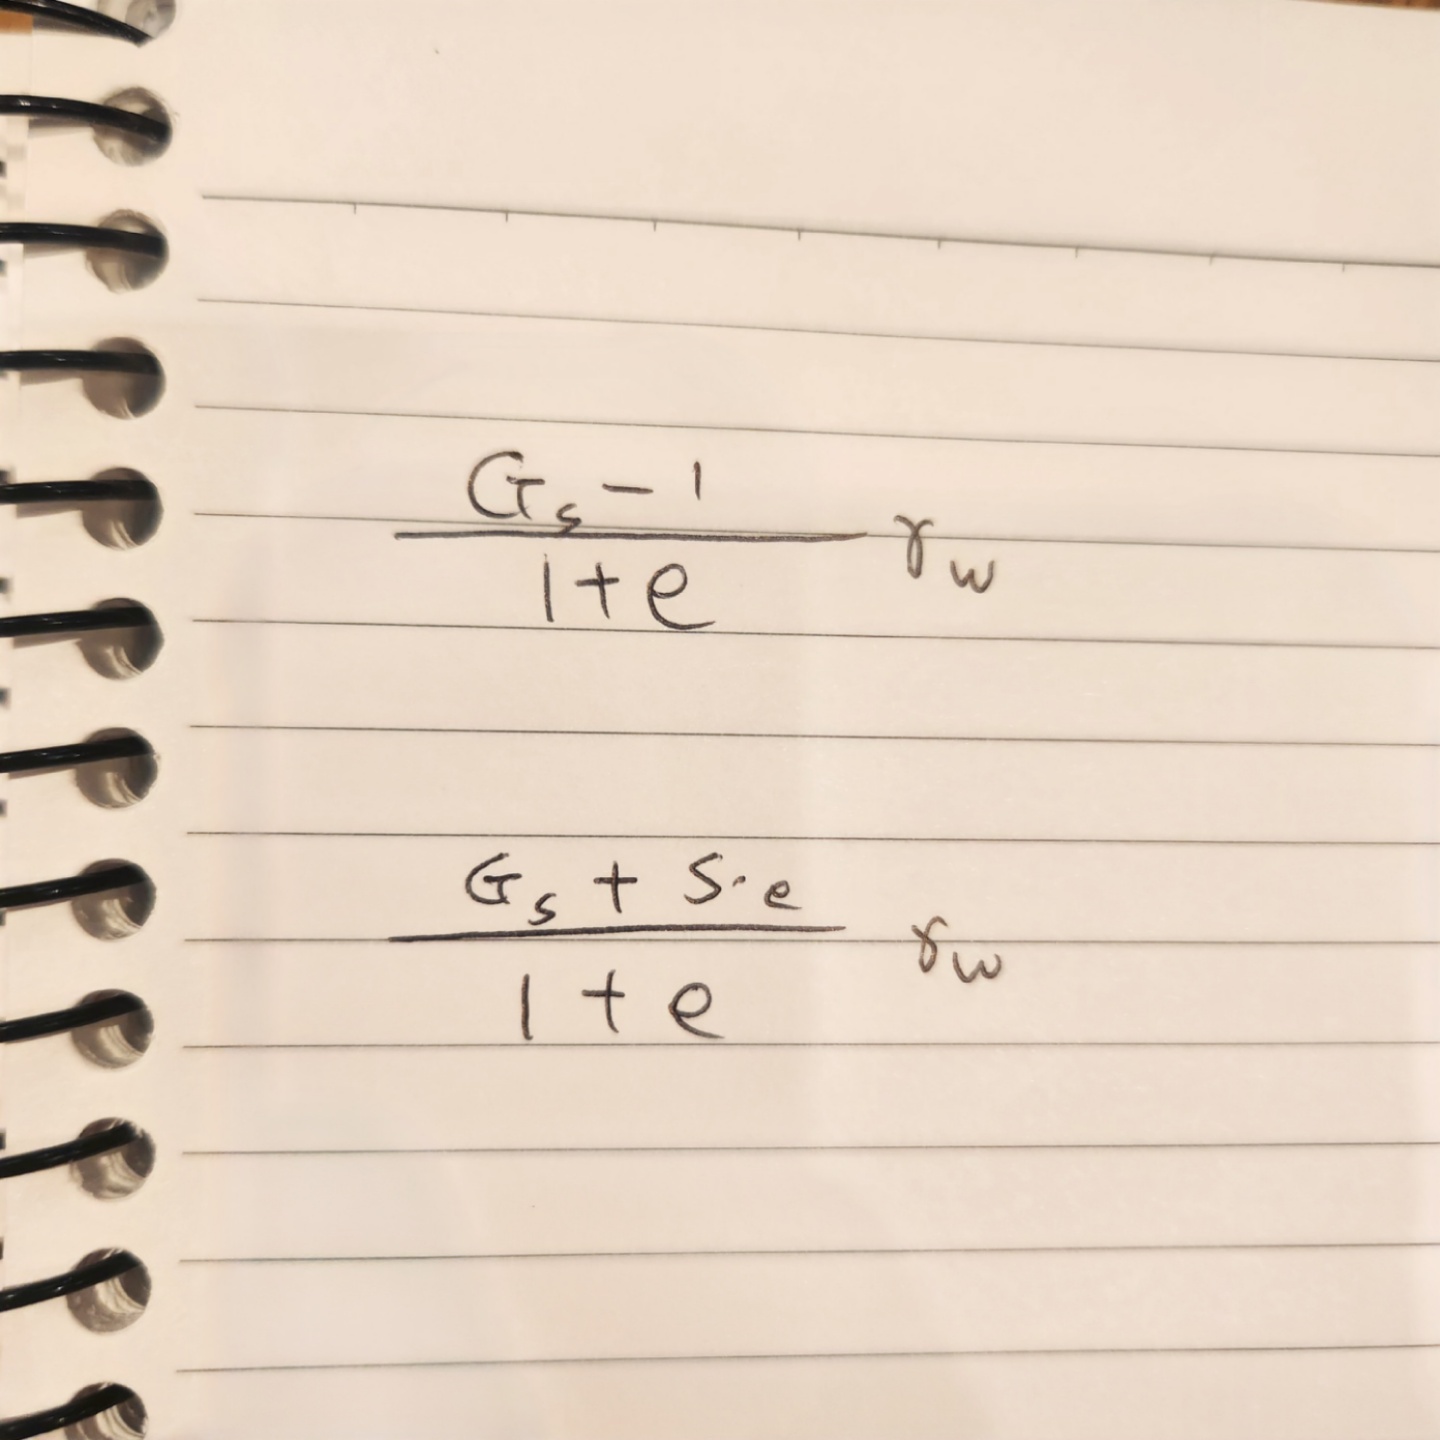 \frac{G_s - 1}{1 + e} γ_w
\frac{G_s + S \cdot e}{1 + e} γ_w